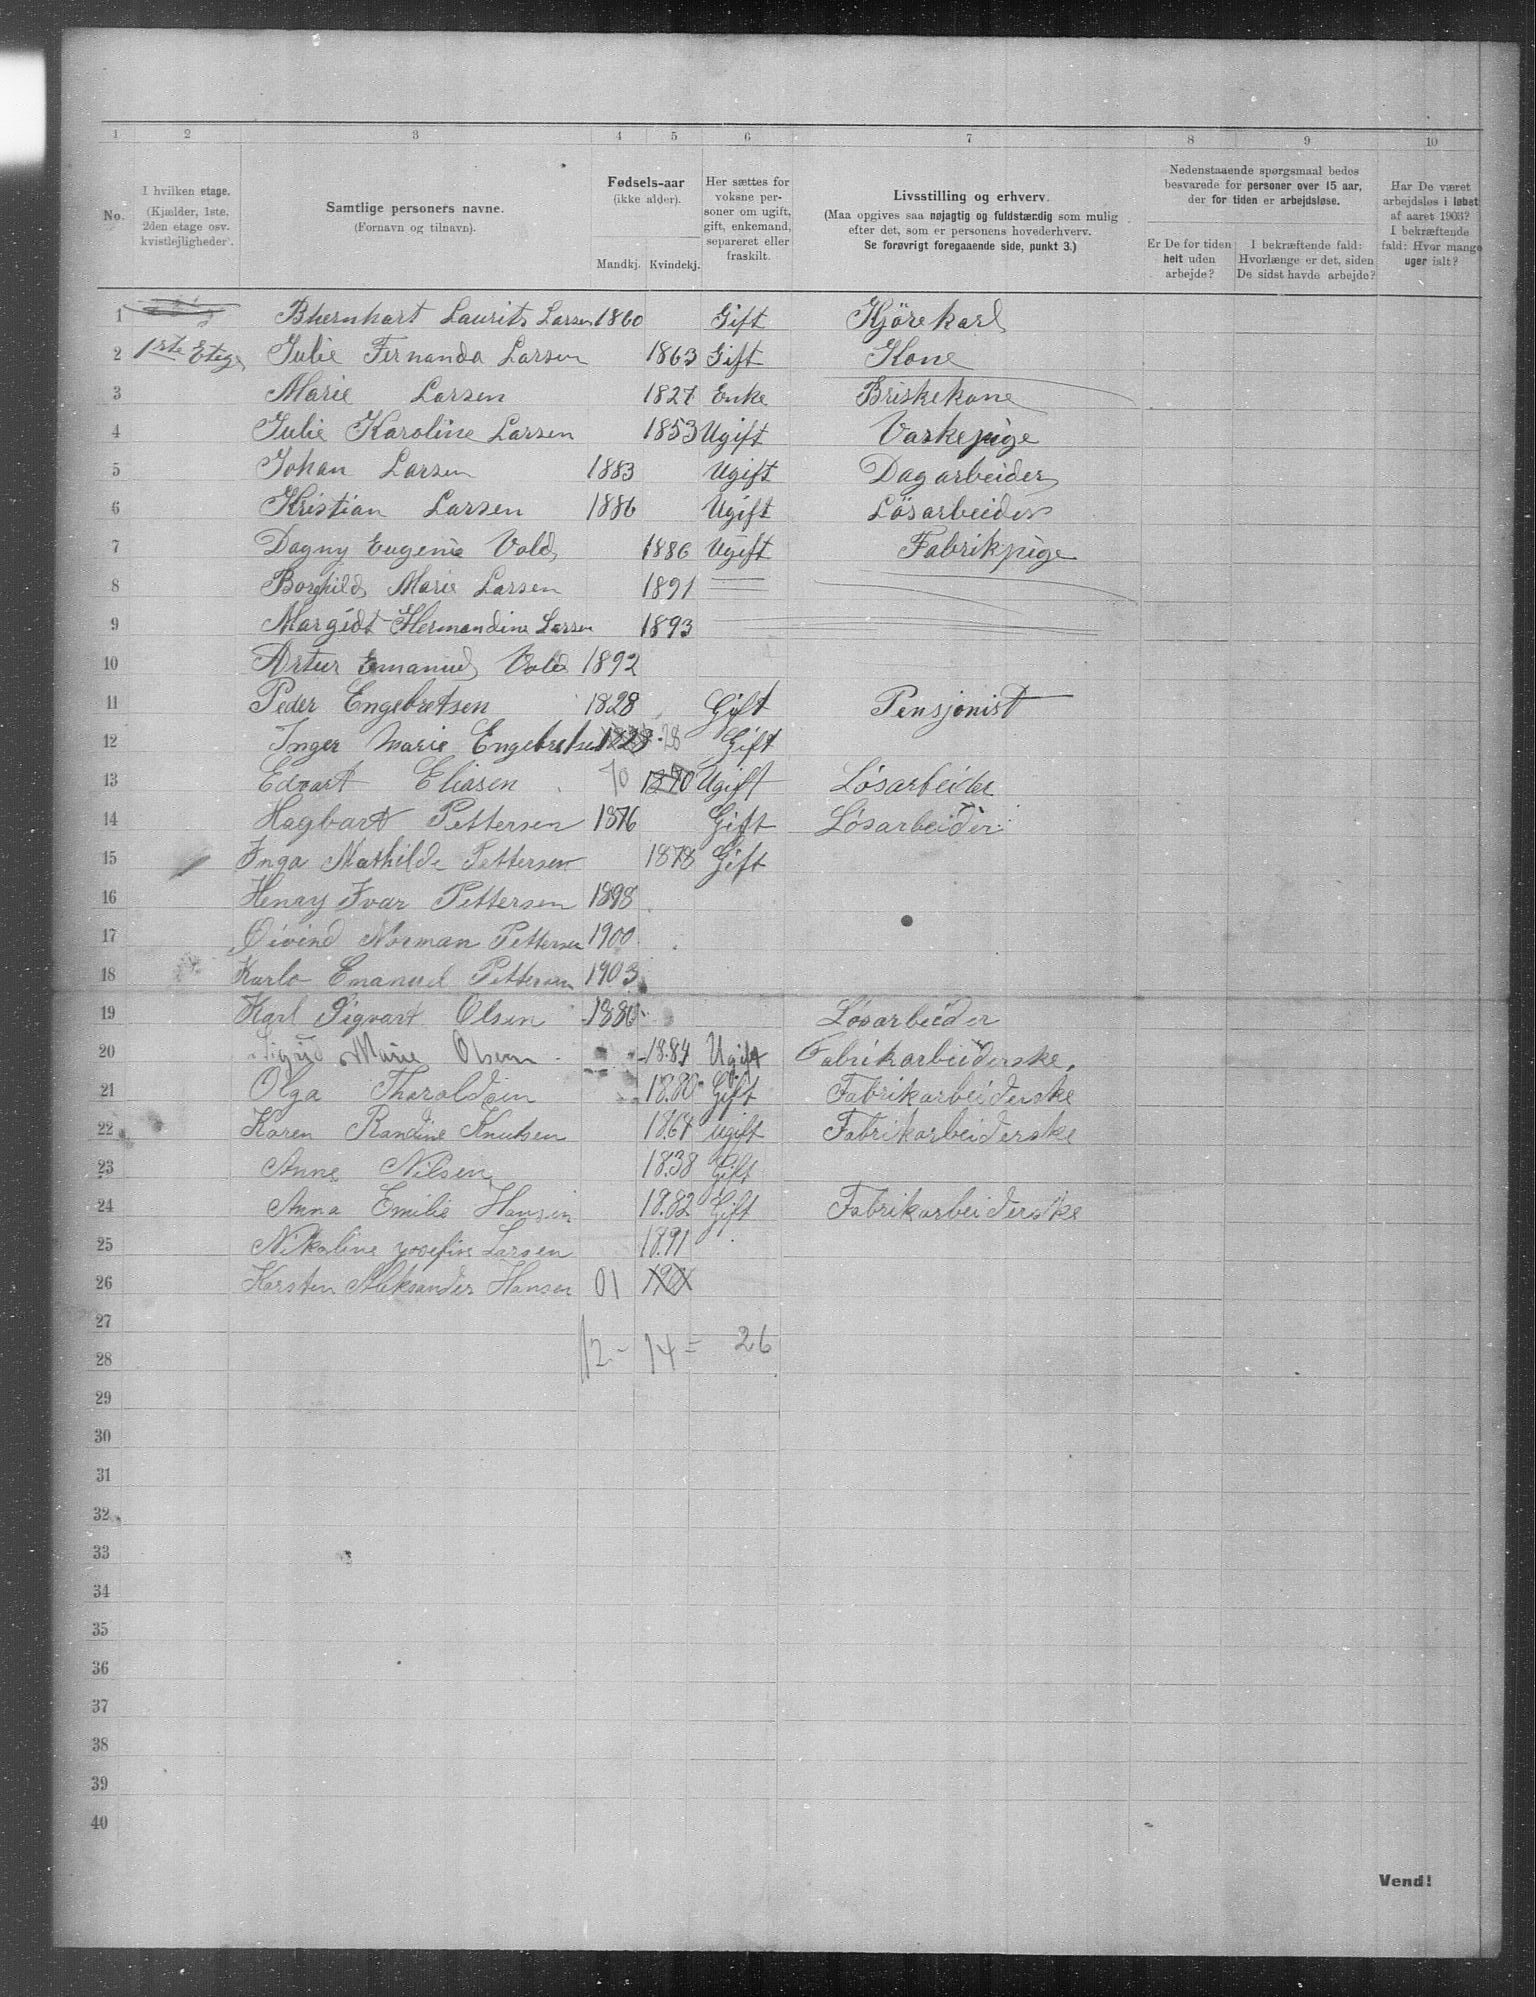 1 2 3 4 5 6 7 8 9 10
No.
I hvilken etage.
(Kjælder, 1ste,
2den etage osv.
kvistlejligheder).
Samtlige personers navne.
(Fornavn og tilnavn).
Fødsels-aar
(ikke alder).
Mandkj. Kvindekj.
Her sættes for
voksne per-
soner om ugift,
gift, enkemand,
separeret eller
fraskilt.
Livsstilling og erhverv.
(Maa opgives saa nøjagtig og fuldstændig som mulig
efter det, som er personens hovederhverv.
Se forøvrigt foregaaende side, punkt 3.)
Nedenstaaende spørgsmaal bedes
besvarede for personer over 15 aar,
der for tiden er arbejdsløse.
Er De for tiden
helt uden
arbejde?
I bekræftende fald:
Hvorlænge er det, siden
De sidst havde arbejde?
Har De været
arbejdsløs i løbet
af aaret 1903?
I bekræftende
fald: Hvor mange
uger ialt?
1 Bhernhart Laurits Larsen 1860 Gift Kjörekarl
2 1ste Etige Julie Fernanda Larsen 1863 Gift Kone
3 Marie Larsen 1827 Enke Briskekone
4 Julie Karoline Larsen 1853 Ugift Vaskepige
5 Johan Larsen 1883 Ugift Dagarbeider
6 Kristian Larsen 1886 Ugift Lösarbeider
7 Dagny Eugenie Vold 1886 Ugift Fabrikpige
8 Borghild Marie Larsen 1891
9 Margidt Hermandine Larsen 1893
10 Artur Emanuel Vold 1892
11 Peder Engebretsen 1828 Gift Pensjonist
12 Inger Marie Engebretsen 1828 28 Gift
13 Edvart Eliasen 70 1870 Ugift Lösarbeider
14 Hagbart Pettersen 1876 Gift Lösarbeider
15 Inga Mathilde Pettersen 1878 Gift
16 Henry Ivar Pettersen 1898
17 Öivind Norman Pettersen 1900
18 Karlo Emanuel Pettersen 1903
19 Karl Sigvart Olsen 1886 Lösarbeider
20 Sigrid Marie Olsen 1884 Ugift Fabrikarbeiderske
21 Olga Tharaldsen 1880 Gift Fabrikarbeiderske
22 Karen Randine Knutsen 1864 Ugift Fabrikarbeiderske
23 Anne Nilsen 1838 Gift
24 Anna Emilie Hansen 1882 Gift Fabrikarbeiderske
25 Nikoline Josefine Larsen 1891
26 Karsten Aleksander Hansen 01
27
12 - 14 = 26
28
29
30
31
32
33
34
35
36
37
38
39
40
Vend!